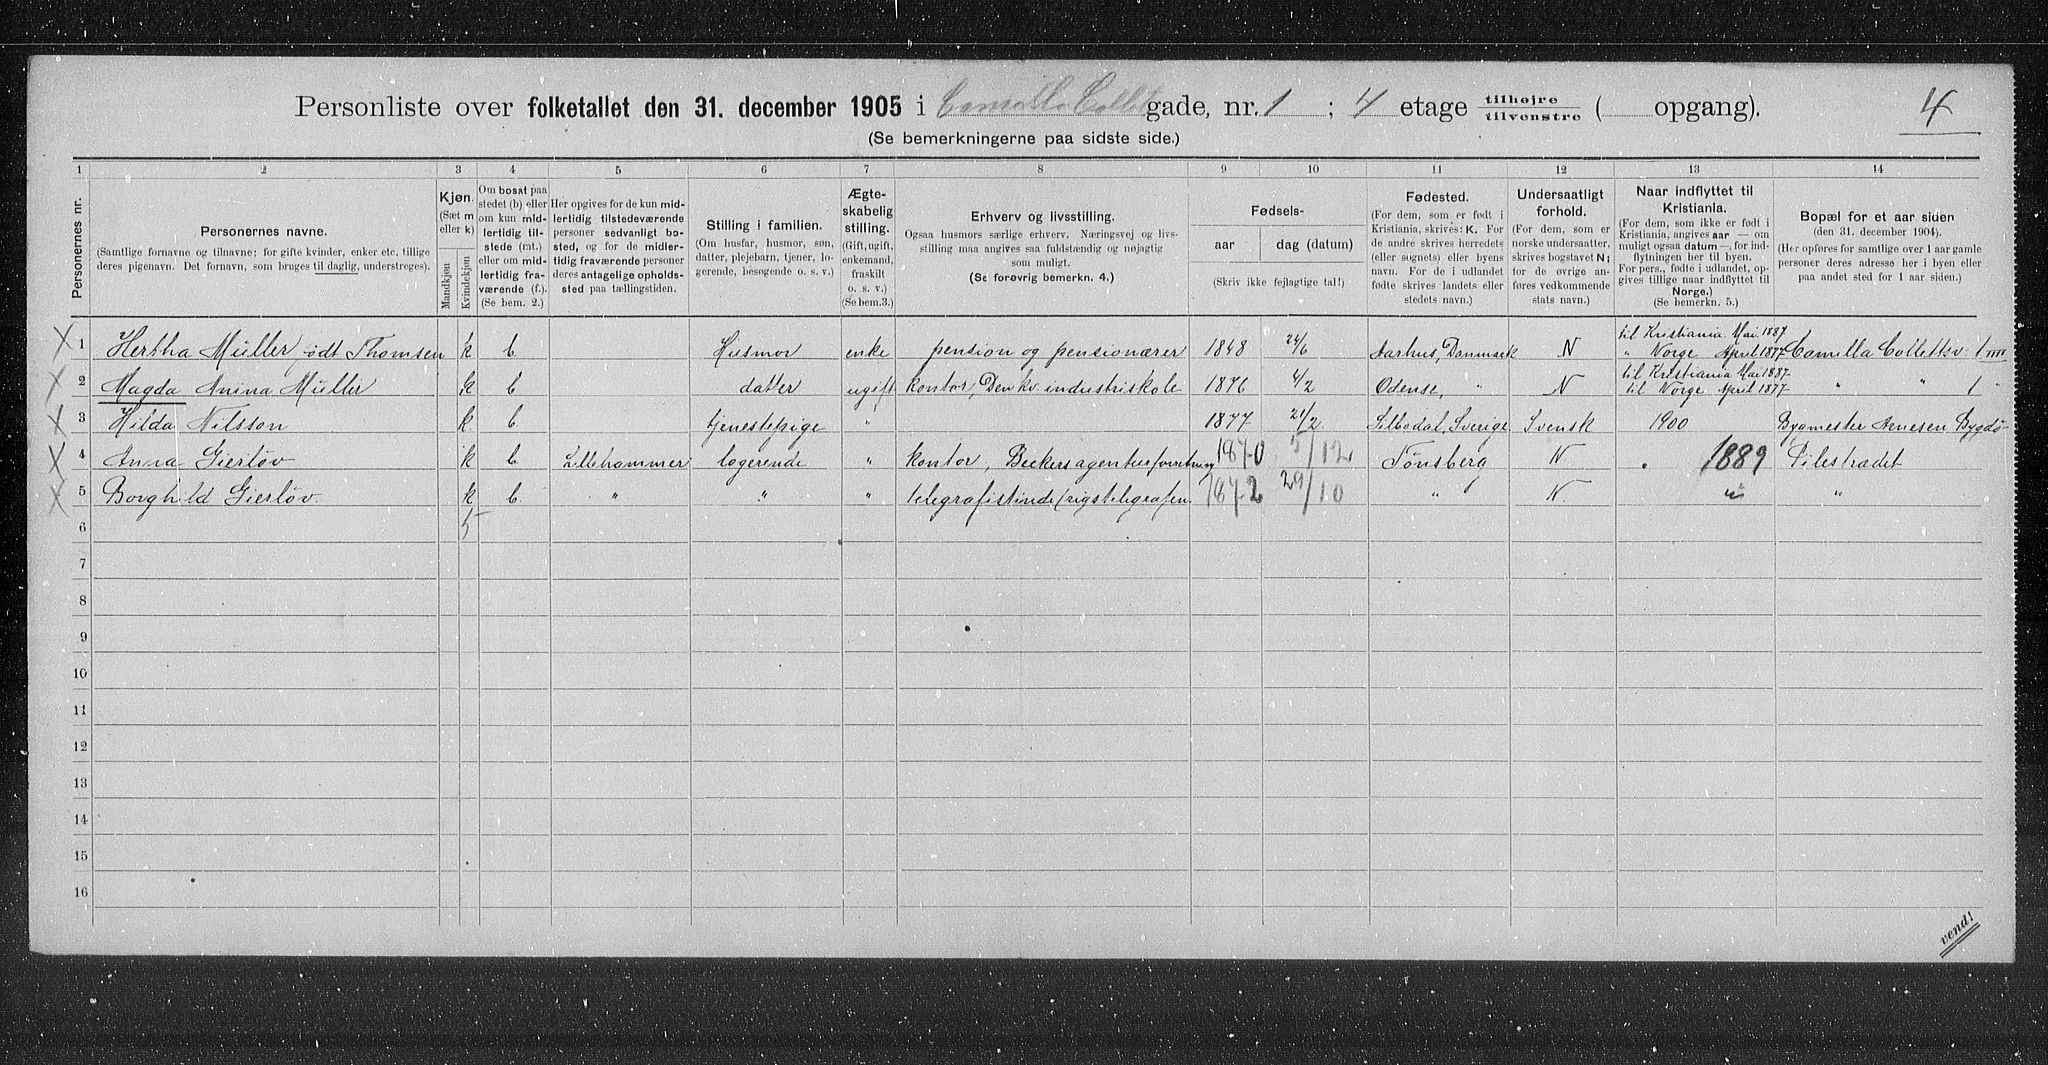 Personliste over folketallet den 31. december 1905 i Camilla Collet gade, nr. 1 ; 4 etage tilhøjre tilvenstre ( opgang). 4
(Se bemerkningerne paa sidste side.)
1 2 3 4 5 6 7 8 9 10 11 12 13 14
Personernes nr.
Personernes navne.
(Samtlige fornavne og tilnavne; for gifte kvinder, enker etc. tillige
deres pigenavn. Det fornavn, som bruges til daglig, understreges).
Kjøn.
(Sæt m
eller k)
Mandkjøn
Kvindekjøn
Om bosat paa
stedet (b) eller
om kun mid-
lertidig til-
stede (mt.)
eller om mid-
lertidig fra-
værende (f.).
(Se bem. 2.)
Her opgives for de kun mid-
lertidig tilstedeværende
personer sedvanligt bo-
sted, og for de midler-
tidig fraværende personer
deres antagelige opholds-
sted paa tællingstiden.
Stilling i familien.
(Om husfar, husmor, søn,
datter, plejebarn, tjener, lo-
gerende, besøgende o. s. v.)
Ægte-
skabelig
stilling.
(Gift, ugift,
enkemand,
fraskilt
o. s. v.)
(Se bem.3.)
Erhverv og livsstilling.
Ogsaa husmors særlige erhverv. Næringsvej og livs-
stilling maa angives saa fuldstændig og nøjagtig
som muligt.
(Se forøvrig bemerkn. 4.)
Fødsels-
aar dag (datum)
(Skriv ikke fejlagtige tal!)
Fødested.
(For dem, som er født i
Kristiania, skrives: K. For
de andre skrives herredets
(eller sognets) eller byens
navn. For de i udlandet
fødte skrives landets eller
stedets navn.)
Undersaatligt
forhold.
(For dem, som er
norske undersaatter,
skrives bogstavet N;
for de øvrige an-
føres vedkommende
stats navn.)
Naar indflyttet til
Kristiania.
(For dem, som ikke er født i
Kristiania, angives aar — om
muligt ogsaa datum —, for ind-
flytningen her til byen.
For pers., fødte i udlandet, op-
gives tillige naar indflyttet til
Norge.)
(Se bemerkn. 5.)
Bopæl for et aar siden
(den 31. december 1904).
(Her opføres for samtlige over 1 aar gamle
personer deres adresse her i byen eller
paa andet sted for 1 aar siden.)
X 1 Hertha Müller født Thomsen k b Husmor enke pension og pensionærer 1848 24/6 Aarhus, Danmark N til Kristiania Mai 1887 " Norge April 1877 Camilla Collettsv. 1
X 2 Magda Anina Müller k b datter ugift kontor, Den kv. industriskole 1876 4/2 Odense, " N til Kristiania Mai 1887 til Norge April 1877 " " 1 "
X 3 Hilda Nilsson k b tjenestepige " 1877 21/2 Silbodal, Sverige Svensk 1900 Bygmester Arnesen Bygdø
X 4 Anna Gierløv k b Lillehammer logerende " kontor, Beckers agenturforretning 1870 5/12 Tønsberg N. 1889 Pilestrædet
X 5 Borghild Gierløv. k b " " " telegrafistinde (rigstelegrafen 1872 29/10 " N. " "
6 5
7
8
9
10
11
12
13
14
15
16
vend!